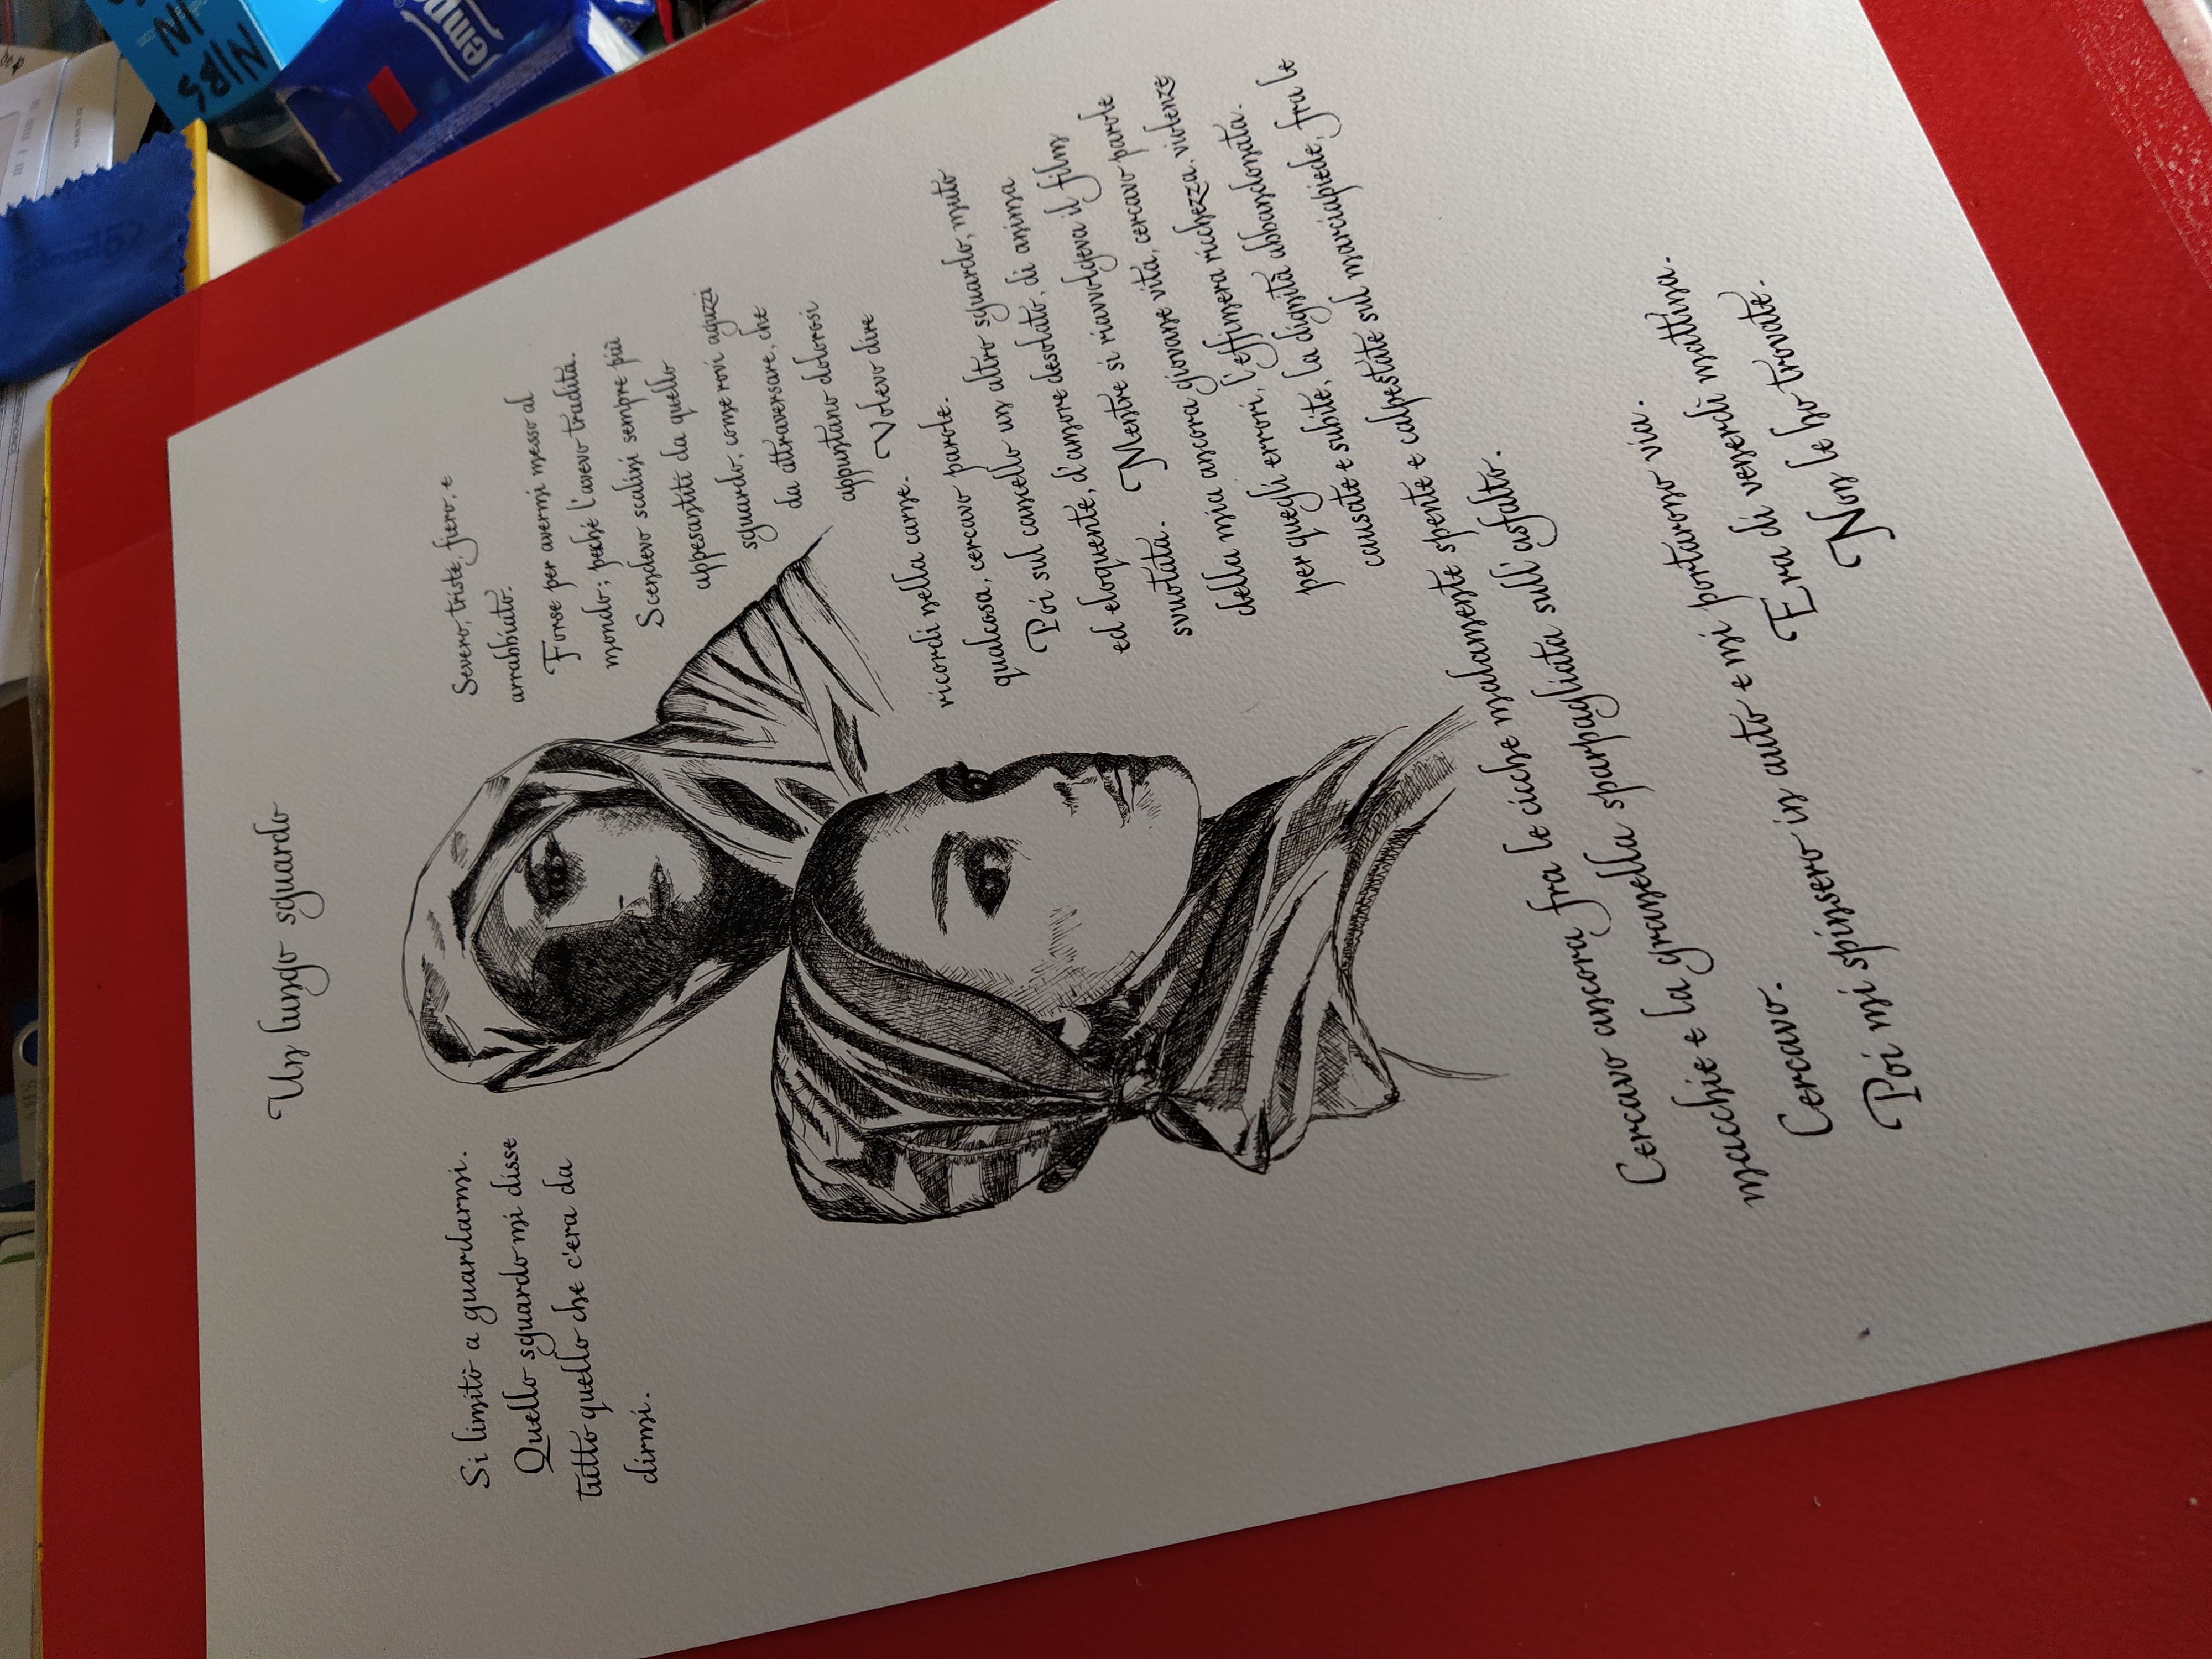 Un lungo sguardo
Si limitò a guardarmi.
Quello sguardo mi disse
tutto quello che c'era da
dirmi.
Severo, triste, fiero, e
arrabbiato.
Forse per avermi messo al
mondo; perché l'avevo tradita.
Scendevo scalini sempre più
appesantito da quello
sguardo, come rovi aguzzi
da attraversare, che
appuntano dolorosi
ricordi nella carne. Volevo dire
qualcosa, cercavo parole.
Poi sul cancello un altro sguardo, muto
ed eloquente, d'amore desolato, di anima
svuotata. Mentre si riavvolgeva il film
della mia ancora giovane vita, cercavo parole
per quegli errori, l'effimera ricchezza, violenze
causate e subite, la dignità abbandonata.
Cercavo ancora fra le cicche malamente spente e calpestate sul marciapiede, fra le
macchie e la granella sparpagliata sull'asfalto.
Cercavo.
Poi mi spinsero in auto e mi portarono via.
Era di venerdì mattina.
Non le ho trovate.
NIBS
IN
Temp